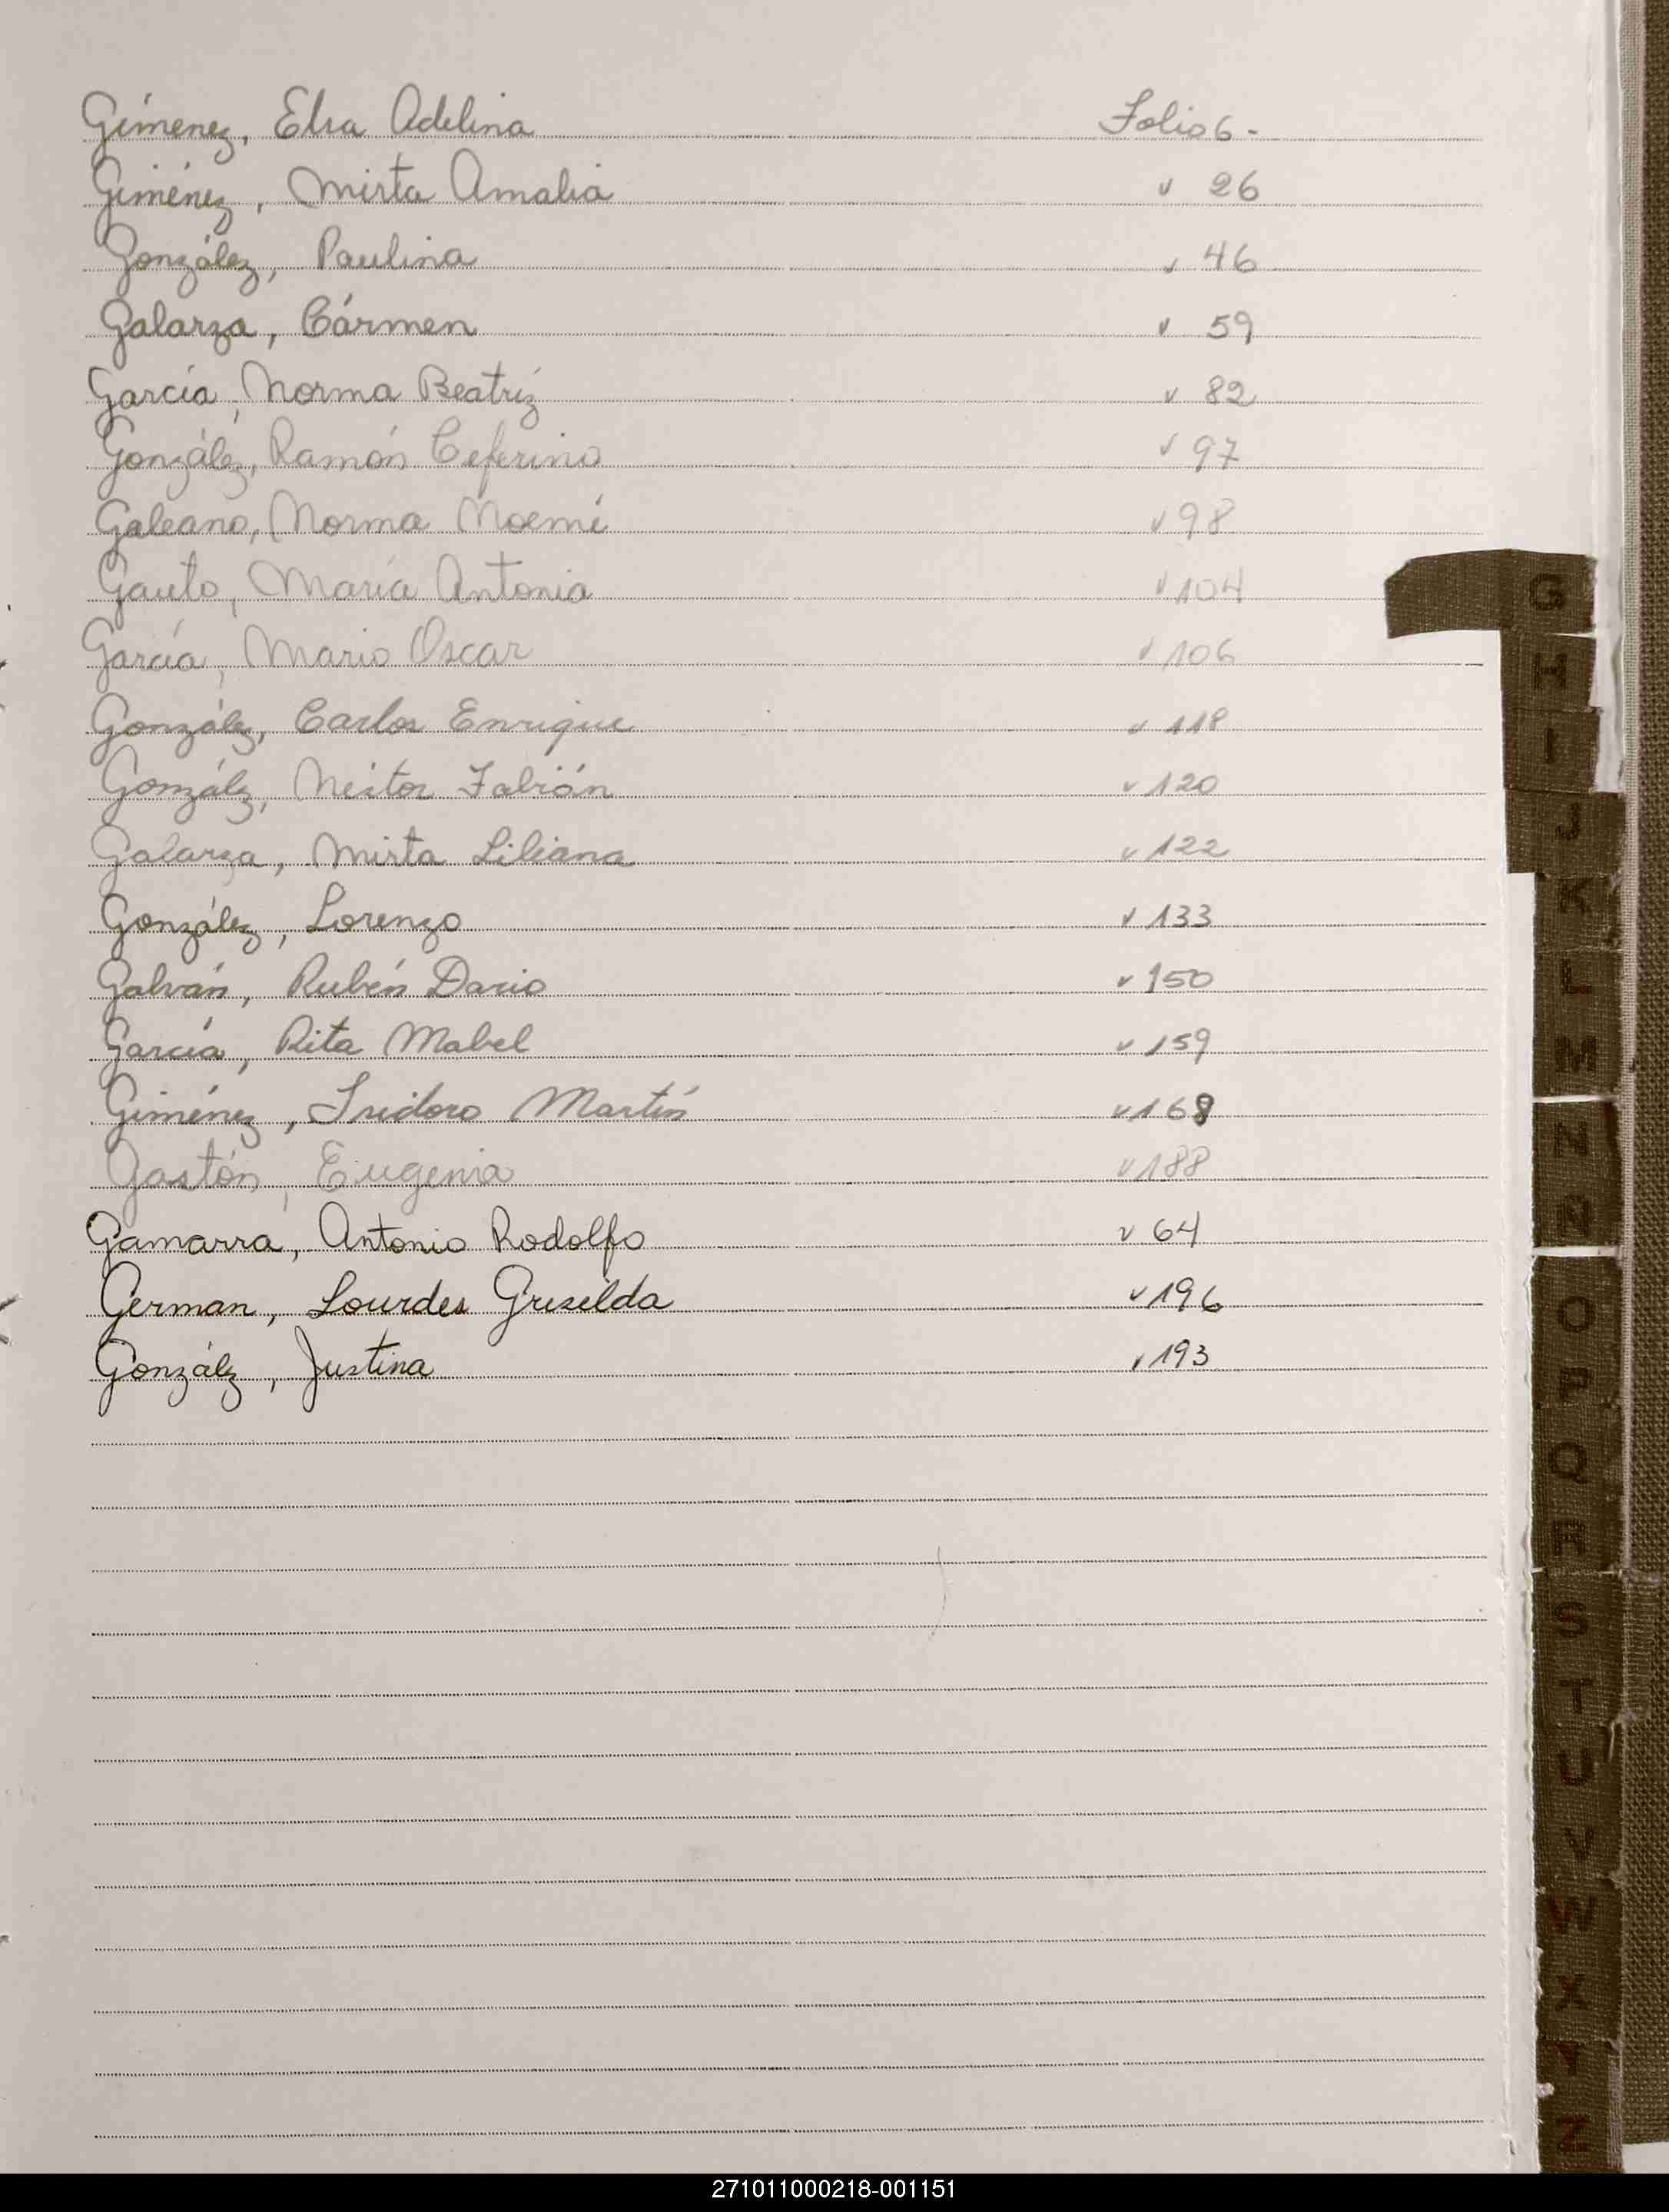 Gimenez, Elsa Adelina Folio 6.-
Giménez, Mirta Amalia v 26
González, Paulina v 46
Galarza, Cármen v 59
García, Norma Beatríz v 82
González, Ramón Ceferino v 97
Galeano, Norma Noemí v 98
Gauto, María Antonia v 104
García, Mario Oscar v 106
González, Carlos Enrique v 118
González, Néstor Fabián v 120
Galarza, Mirta Liliana v 122
González, Lorenzo v 133
Galván, Rubén Dario v 150
García, Rita Mabel v 159
Giménez, Isidoro Martín v 169
Gastón, Eugenia v 188
Gamarra, Antonio Rodolfo v 64
German, Lourdes Griselda v 196
González, Justina v 193
G
H
I
J
K
L
M
N
Ñ
O
P
Q
R
S
T
U
V
W
X
Y
Z
271011000218-001151